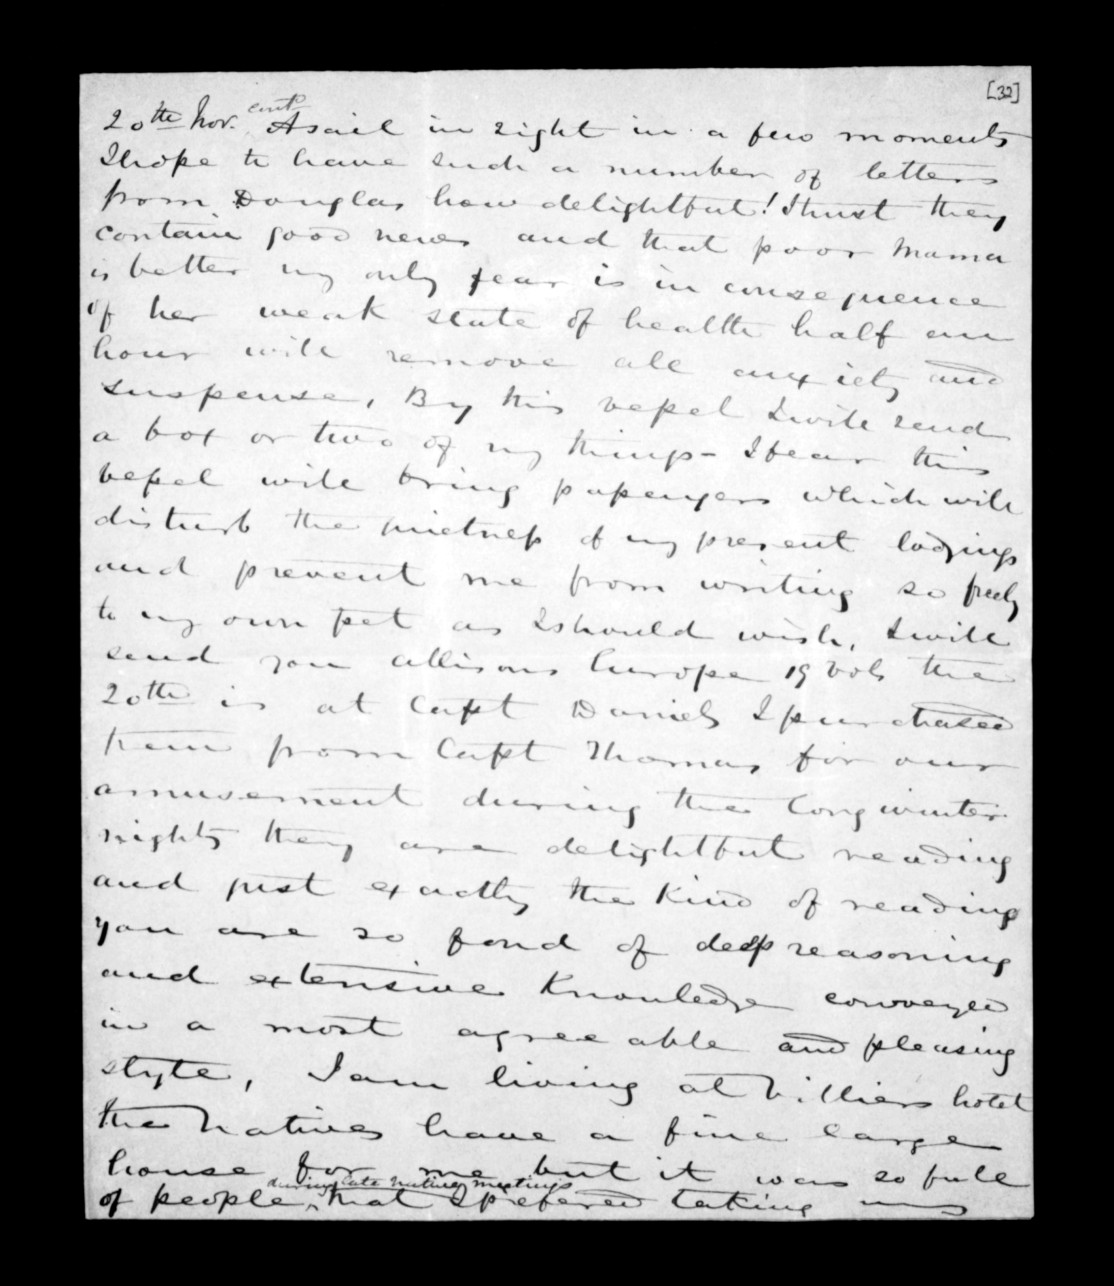 [32]
20th Nov. contd A sail in sight in a few moments
I hope to have such a number of letters
from Douglas how delightful! I trust they
contain good news and that poor Mama
is better my only fear is in consequence
of her weak state of health half an
hour will remove all anxiety and
suspense, By this vessel I will send
a box or two of my things - I fear this
vessel will bring passengers which will
disturb the quietness of my present lodgings
and prevent me from writing so freely
to my own pet as I should wish, I will
send you Allisons Europe 19 vols the
20th is at Capt Daniels I purchased
them from Capt Thomas for our
amusement during the long winter
nights they are delightful reading
and just exactly the kind of reading
you are so fond of deep reasoning
and extensive Knowledge conveyed
in a most agreeable and pleasing
style, I am living at Villiers hotel
the Natives have a fine large
house for me but it was so full
during late native meetings
of people, that I prefered taking my